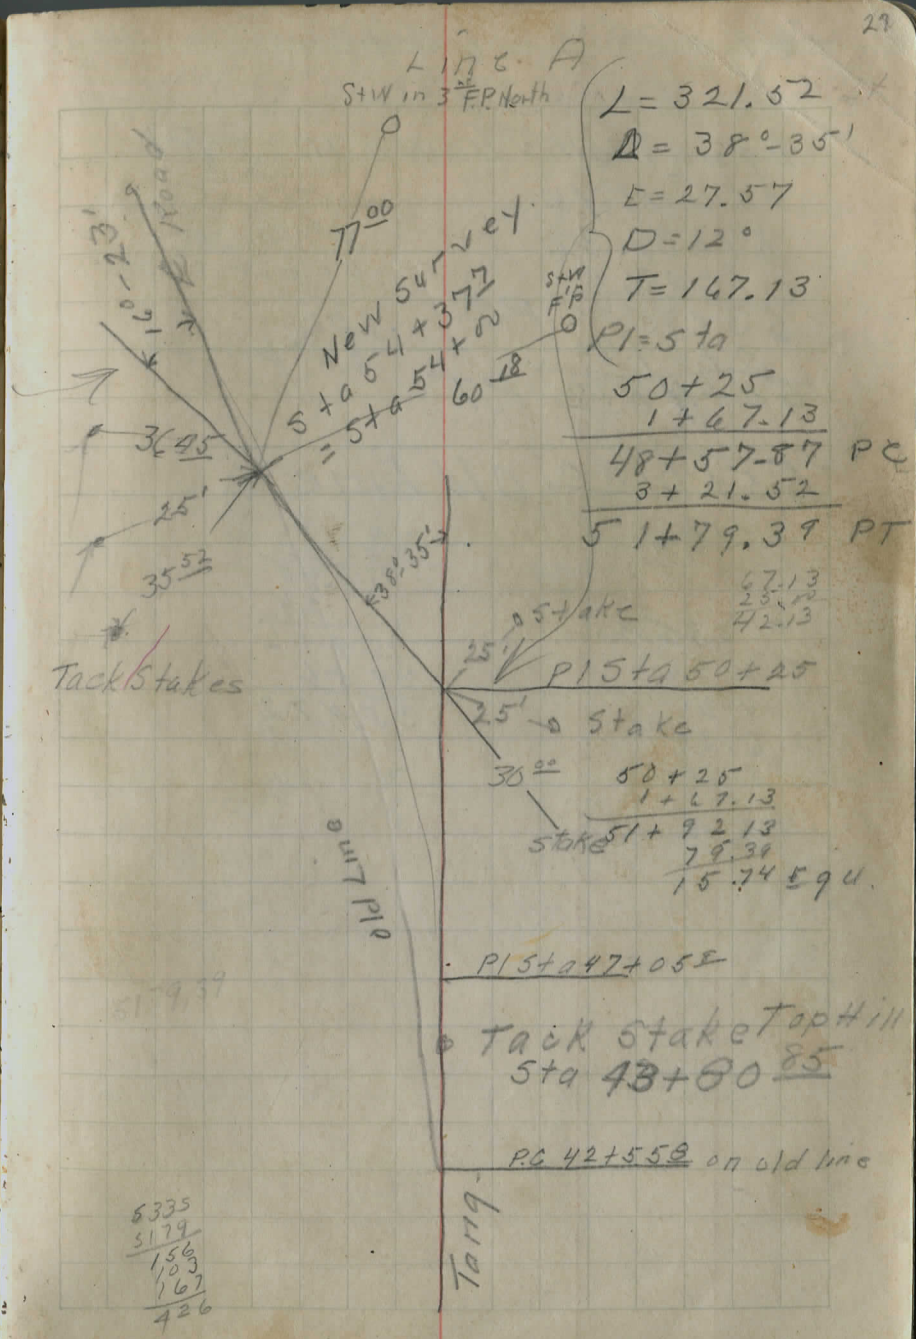 29
Line A
S+W in 3rd F.P. North
L = 321.52
Δ = 38°-35'
E = 27.57
D = 12°
T = 167.13
PI = Sta
50+25
1+67.13
48+57.87 PC
3+21.52
51+79.39 PT
Road
16°-23'
77 00
New Survey
Sta 54+37 7
= Sta 54+00
S+W
F P
60 18
3645
25'
35 52
Tack Stakes
38°-35'
67.13
25.13
42.13
25' Stake
PI Sta 50+25
25' Stake
30 00
Stake
50+25
1+67.13
51+92 13
79.39
15.74 Equ.
Old Line
PI Sta 47+05 8
5179.39
Tack Stake Top Hill
Sta 43+80 85
P.C 42+55 8 on old line
Tang.
5335
5179
156
103
167
426